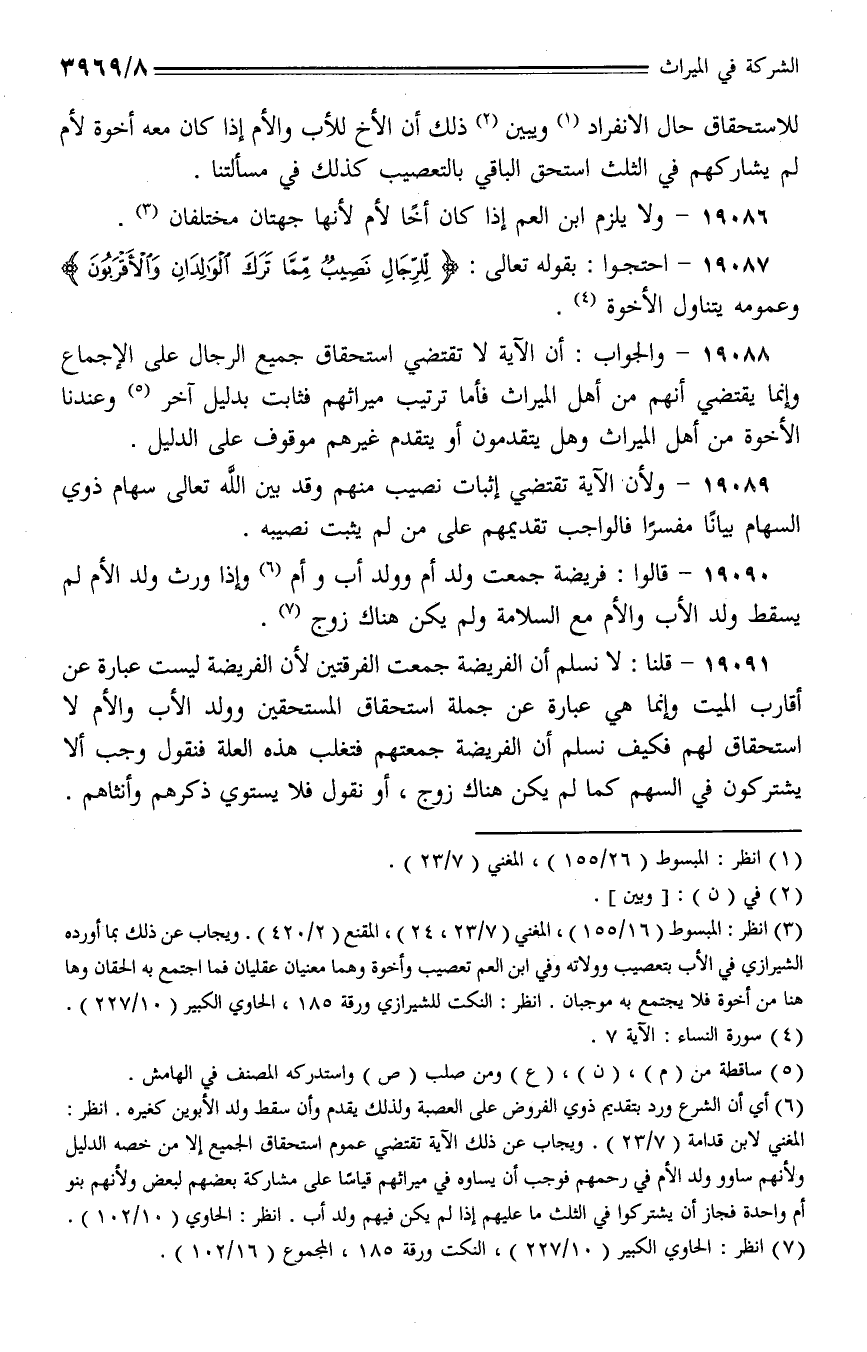 الشركة في الميراث ٣٩٦٩/٨
للاستحقاق حال الانفراد (١) ويبين (٢) ذلك أن الأخ للأب والأم إذا كان معه أخوة لأم
لم يشاركهم في الثلث استحق الباقي بالتعصيب كذلك في مسألتنا .
١٩٠٨٦ - ولا يلزم ابن العم إذا كان أخًا لأم لأنها جهتان مختلفان (٣) .
١٩٠٨٧ - احتجوا : بقوله تعالى : ﴿ لِّلرِّجَالِ نَصِيبٌ مِّمَّا تَرَكَ ٱلْوَٰلِدَانِ وَٱلْأَقْرَبُونَ ﴾
وعمومه يتناول الأخوة (٤) .
١٩٠٨٨ - والجواب : أن الآية لا تقتضي استحقاق جميع الرجال على الإجماع
وإنما يقتضي أنهم من أهل الميراث فأما ترتيب ميراثهم فثابت بدليل آخر (٥) وعندنا
الأخوة من أهل الميراث وهل يتقدمون أو يتقدم غيرهم موقوف على الدليل .
١٩٠٨٩ - ولأن الآية تقتضي إثبات نصيب منهم وقد بين اللَّه تعالى سهام ذوي
السهام بيانًا مفسرًا فالواجب تقديمهم على من لم يثبت نصيبه .
١٩٠٩٠ - قالوا : فريضة جمعت ولد أم وولد أب و أم (٦) وإذا ورث ولد الأم لم
يسقط ولد الأب والأم مع السلامة ولم يكن هناك زوج (٧) .
١٩٠٩١ - قلنا : لا نسلم أن الفريضة جمعت الفرقتين لأن الفريضة ليست عبارة عن
أقارب الميت وإنما هي عبارة عن جملة استحقاق المستحقين وولد الأب والأم لا
استحقاق لهم فكيف نسلم أن الفريضة جمعتهم فتغلب هذه العلة فنقول وجب ألا
يشتركون في السهم كما لم يكن هناك زوج ، أو نقول فلا يستوي ذكرهم وأنثاهم .
(١) انظر : المبسوط ( ١٥٥/٢٦ ) ، المغني ( ٢٣/٧ ) .
(٢) في ( ن ) : [ وبين ] .
(٣) انظر : المبسوط ( ١٥٥/١٦ ) ، المغني ( ٢٣/٧ ، ٢٤ ) ، المقنع ( ٤٢٠/٢ ) . ويجاب عن ذلك بما أورده
الشيرازي في الأب بتعصيب وولاته وفي ابن العم تعصيب وأخوة وهما معنيان عقليان فما اجتمع به الحقان وها
هنا من أخوة فلا يجتمع به موجبان . انظر : النكت للشيرازي ورقة ١٨٥ ، الحاوي الكبير ( ٢٢٧/١٠ ) .
(٤) سورة النساء : الآية ٧ .
(٥) ساقطة من ( م ) ، ( ن ) ، ( ع ) ومن صلب ( ص ) واستدركه المصنف في الهامش .
(٦) أي أن الشرع ورد بتقديم ذوي الفروض على العصبة ولذلك يقدم وأن سقط ولد الأبوين كغيره . انظر :
المغني لابن قدامة ( ٢٣/٧ ) . ويجاب عن ذلك الآية تقتضي عموم استحقاق الجميع إلا من خصه الدليل
ولأنهم ساوو ولد الأم في رحمهم فوجب أن يساوه في ميراثهم قياسًا على مشاركة بعضهم لبعض ولأنهم بنو
أم واحدة فجاز أن يشتركوا في الثلث ما عليهم إذا لم يكن فيهم ولد أب . انظر : الحاوي ( ١٠٢/١٠ ) .
(٧) انظر : الحاوي الكبير ( ٢٢٧/١٠ ) ، النكت ورقة ١٨٥ ، المجموع ( ١٠٢/١٦ ) .